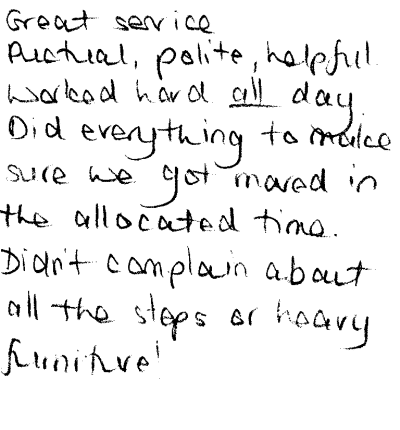 Great service
Puctual, polite, helpful
Worked hard all day
Did everything to make
sure we got moved in
the allocated time.
Didn't complain about
all the steps or heavy
furniture!